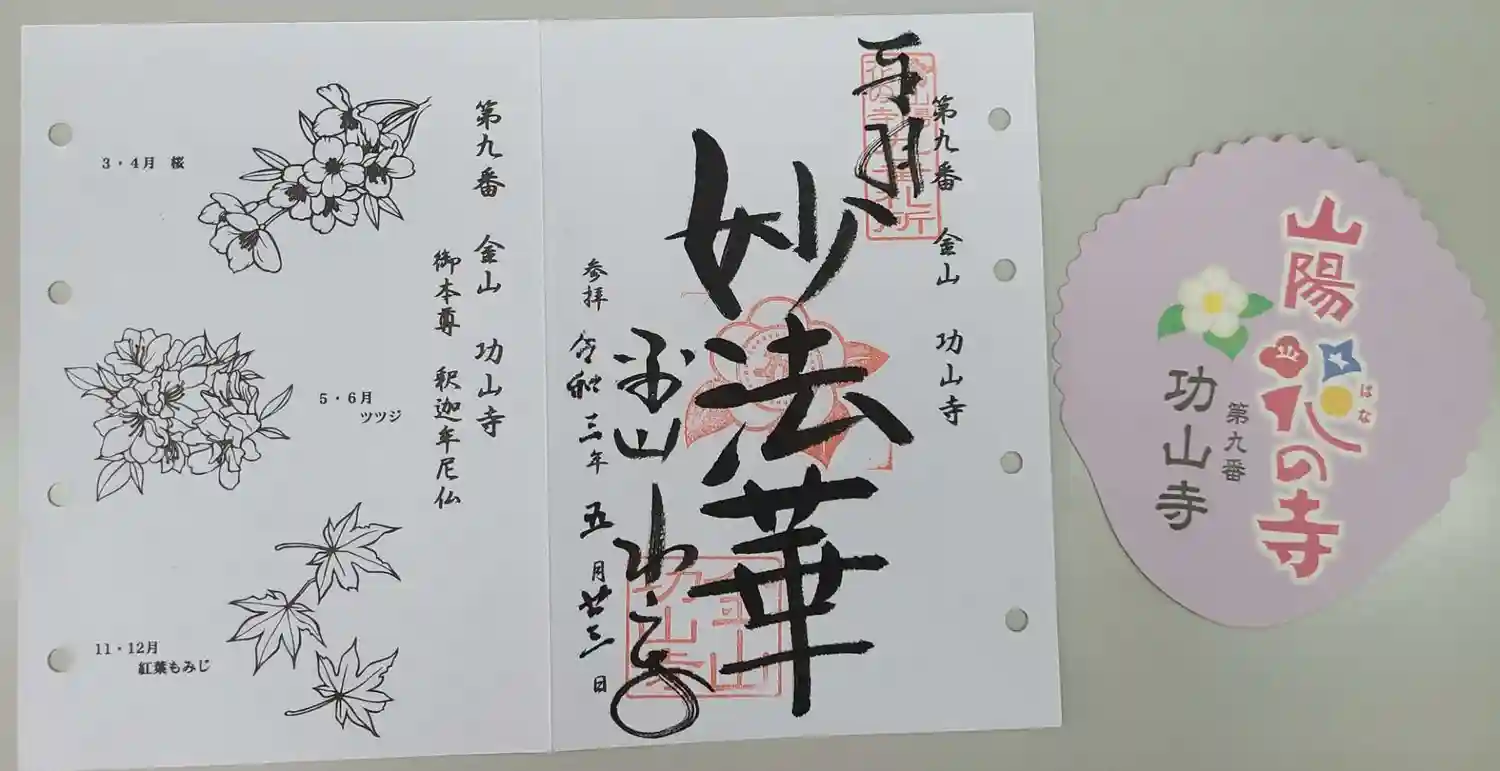 第九番 金山 功山寺
御本尊 釈迦牟尼仏
3・4月 桜
5・6月
ツツジ
11・12月
紅葉もみじ
第九番 金山 功山寺
妙法華
功山寺
参拝 令和三年 五月廿三日
山陽花の寺
はな
第九番
功山寺